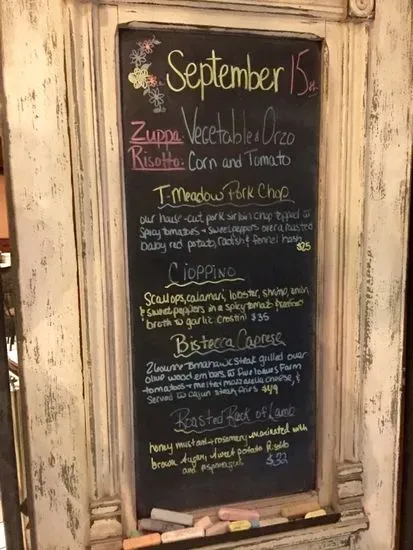 September 15th
Zuppa: Vegetable & Orzo
Risotto: Corn and Tomato
T-Meadow Pork Chop
our house-cut pork sirloin chop topped w
spicy tomatoes + sweet peppers over a roasted
baby red potato, radish & fennel hash
$25
Cioppino
Scallops, calamari, lobster, shrimp, onion
& sweet peppers in a spicy tomato
broth w garlic crostini $35
Bistecca Caprese
Tomahawk steak grilled over
olive wood embers w Five Loaves Farm
tomatoes + melted mozzarella cheese, &
served w cajun steak fries $49
Roasted Rack of Lamb
honey mustard + rosemary marinated with
brown sugar, sweet potato Risotto
and asparagus $32